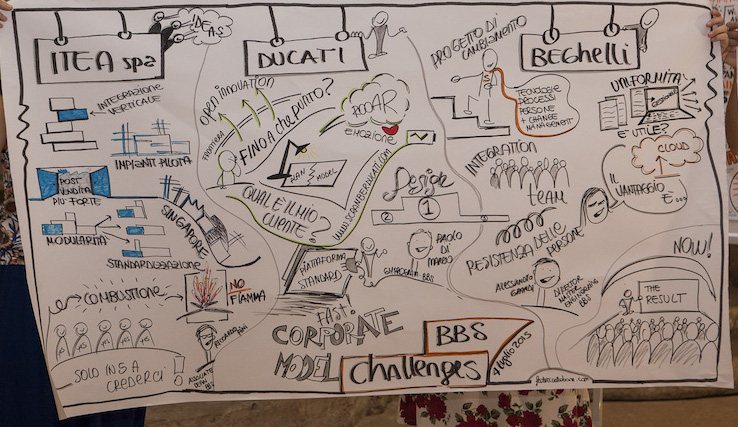 IDEAS
ITEA spa
INTEGRAZIONE
VERTICALE
IMPIANTI PILOTA
POST
VENDITA
PIU' FORTE
MODULARITÀ
STANDARDIZZAZIONE
SINGAPORE
COMBUSTIONE
NO
FIAMMA
SOLO IN 5 A
CREDERCI
DUCATI
OPEN INNOVATION
FRONTIERA
FINO A che punto?
ROAR
EMOZIONE
PLAN
MODEL
QUAL È IL MIO
CLIENTE?
www.SCRAMBLERDUCATI.COM
Design
2
1
3
PAOLO
DI
MARCO
BBS
PIATTAFORMA
STANDARD
FAST!
CORPORATE
MODEL
BBS
challenges
1 luglio 2015
PROGETTO DI
CAMBIAMENTO
BEGhelli
TECNOLOGIE
PROCESSI
PERSONE
+ CHANGE
MANAGEMENT
INTEGRATION
TEAM
RESISTENZA DELLE
PERSONE
ALESSANDRO
DIRECTOR
BBS
UNIFORMITÀ
È UTILE?
CLOUD
IL
VANTAGGIO
È...
NOW!
THE
RESULT